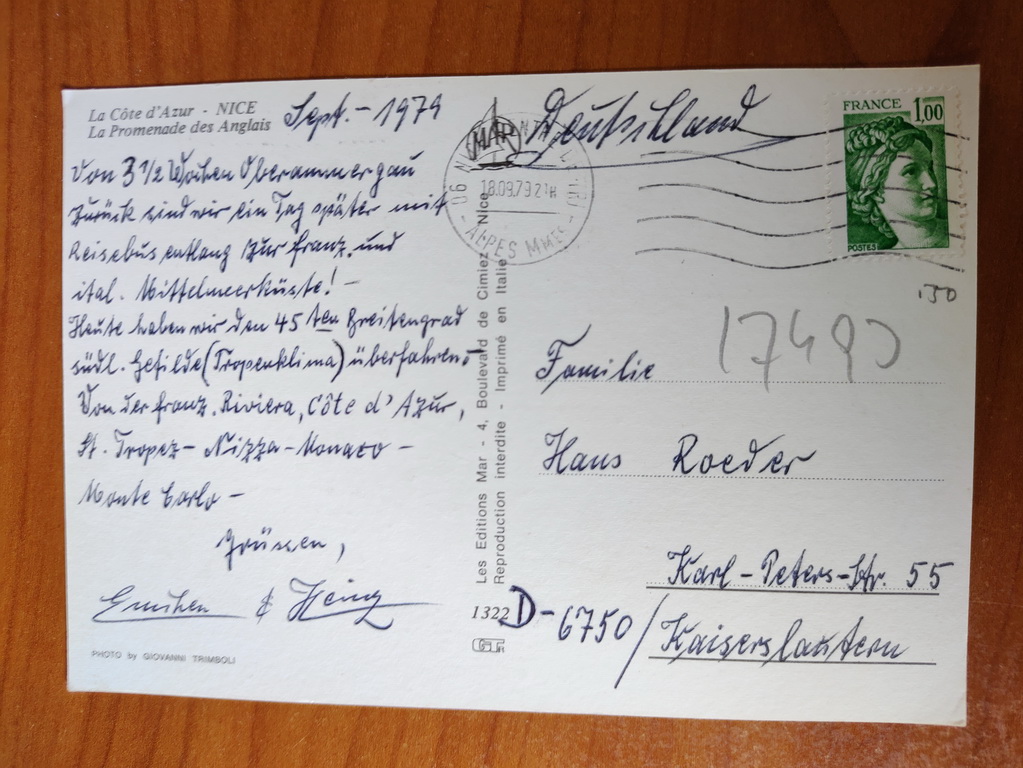 La Côte d'Azur - NICE
La Promenade des Anglais
Sept. - 1979
Von 3 1/2 Wochen Oberammergau
zurück sind wir ein Tag später mit
Reisebus entlang zur franz. und
ital. Mittelmeerküste! -
Heute haben wir den 45 ten Breitengrad
südl. Gefilde (Tropenklima) überfahren.
Von der franz. Riviera, Côte d'Azur,
St. Tropez - Nizza - Monaco -
Monte Carlo -
Grüssen,
& Heinz
PHOTO by GIOVANNI TRIMBOLI
Les Editions Mar - 4, Boulevard de Cimiez - Nice
Reproduction interdite - Imprimé en Italie
1322
MAR
06
18.09.79 21H
ALPES MMES
Deutschland
FRANCE 1,00
POSTES
130
17490
Familie
Hans Roeder
Karl-Peters-Str. 55
D-6750 / Kaiserslautern